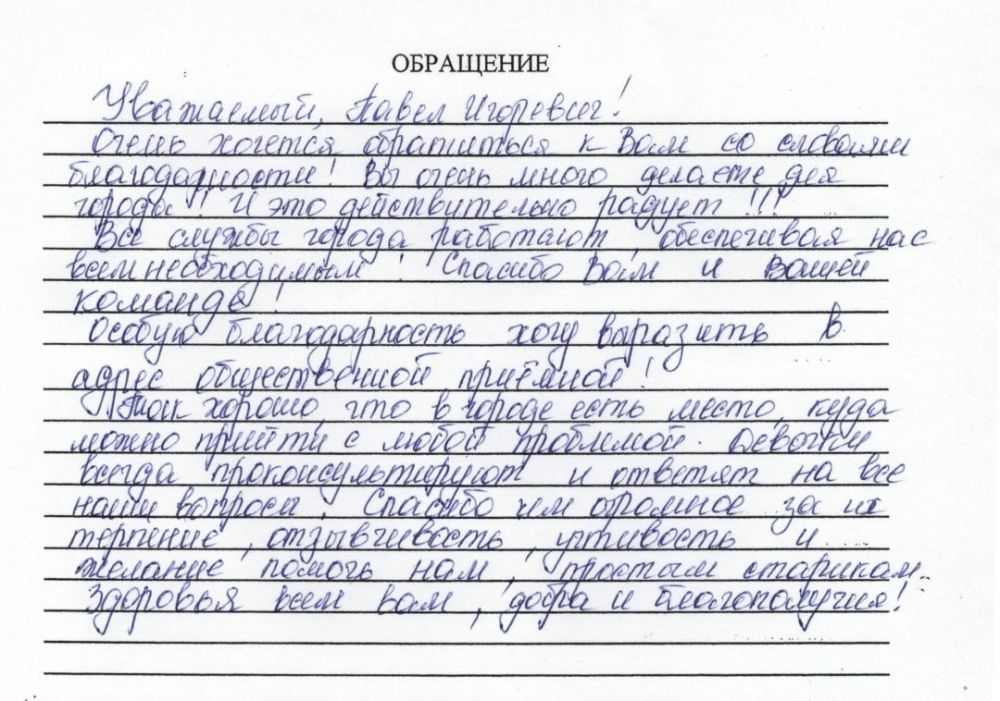 ОБРАЩЕНИЕ
Уважаемый, Павел Игоревич!
Очень хочется обратиться к Вам со словами
благодарности! Вы очень много делаете для
города! И это действительно радует!!!
Все службы города работают, обеспечивая нас
всем необходимым! Спасибо Вам и Вашей
команде!
Особую благодарность хочу выразить в
адрес общественной приёмной!
Так хорошо, что в городе есть место, куда
можно прийти с любой проблемой. Девочки
всегда проконсультируют и ответят на все
наши вопросы! Спасибо им огромное за их
терпение, отзывчивость, учтивость и
желание помочь нам, простым старикам.
Здоровья всем вам, добра и благополучия!